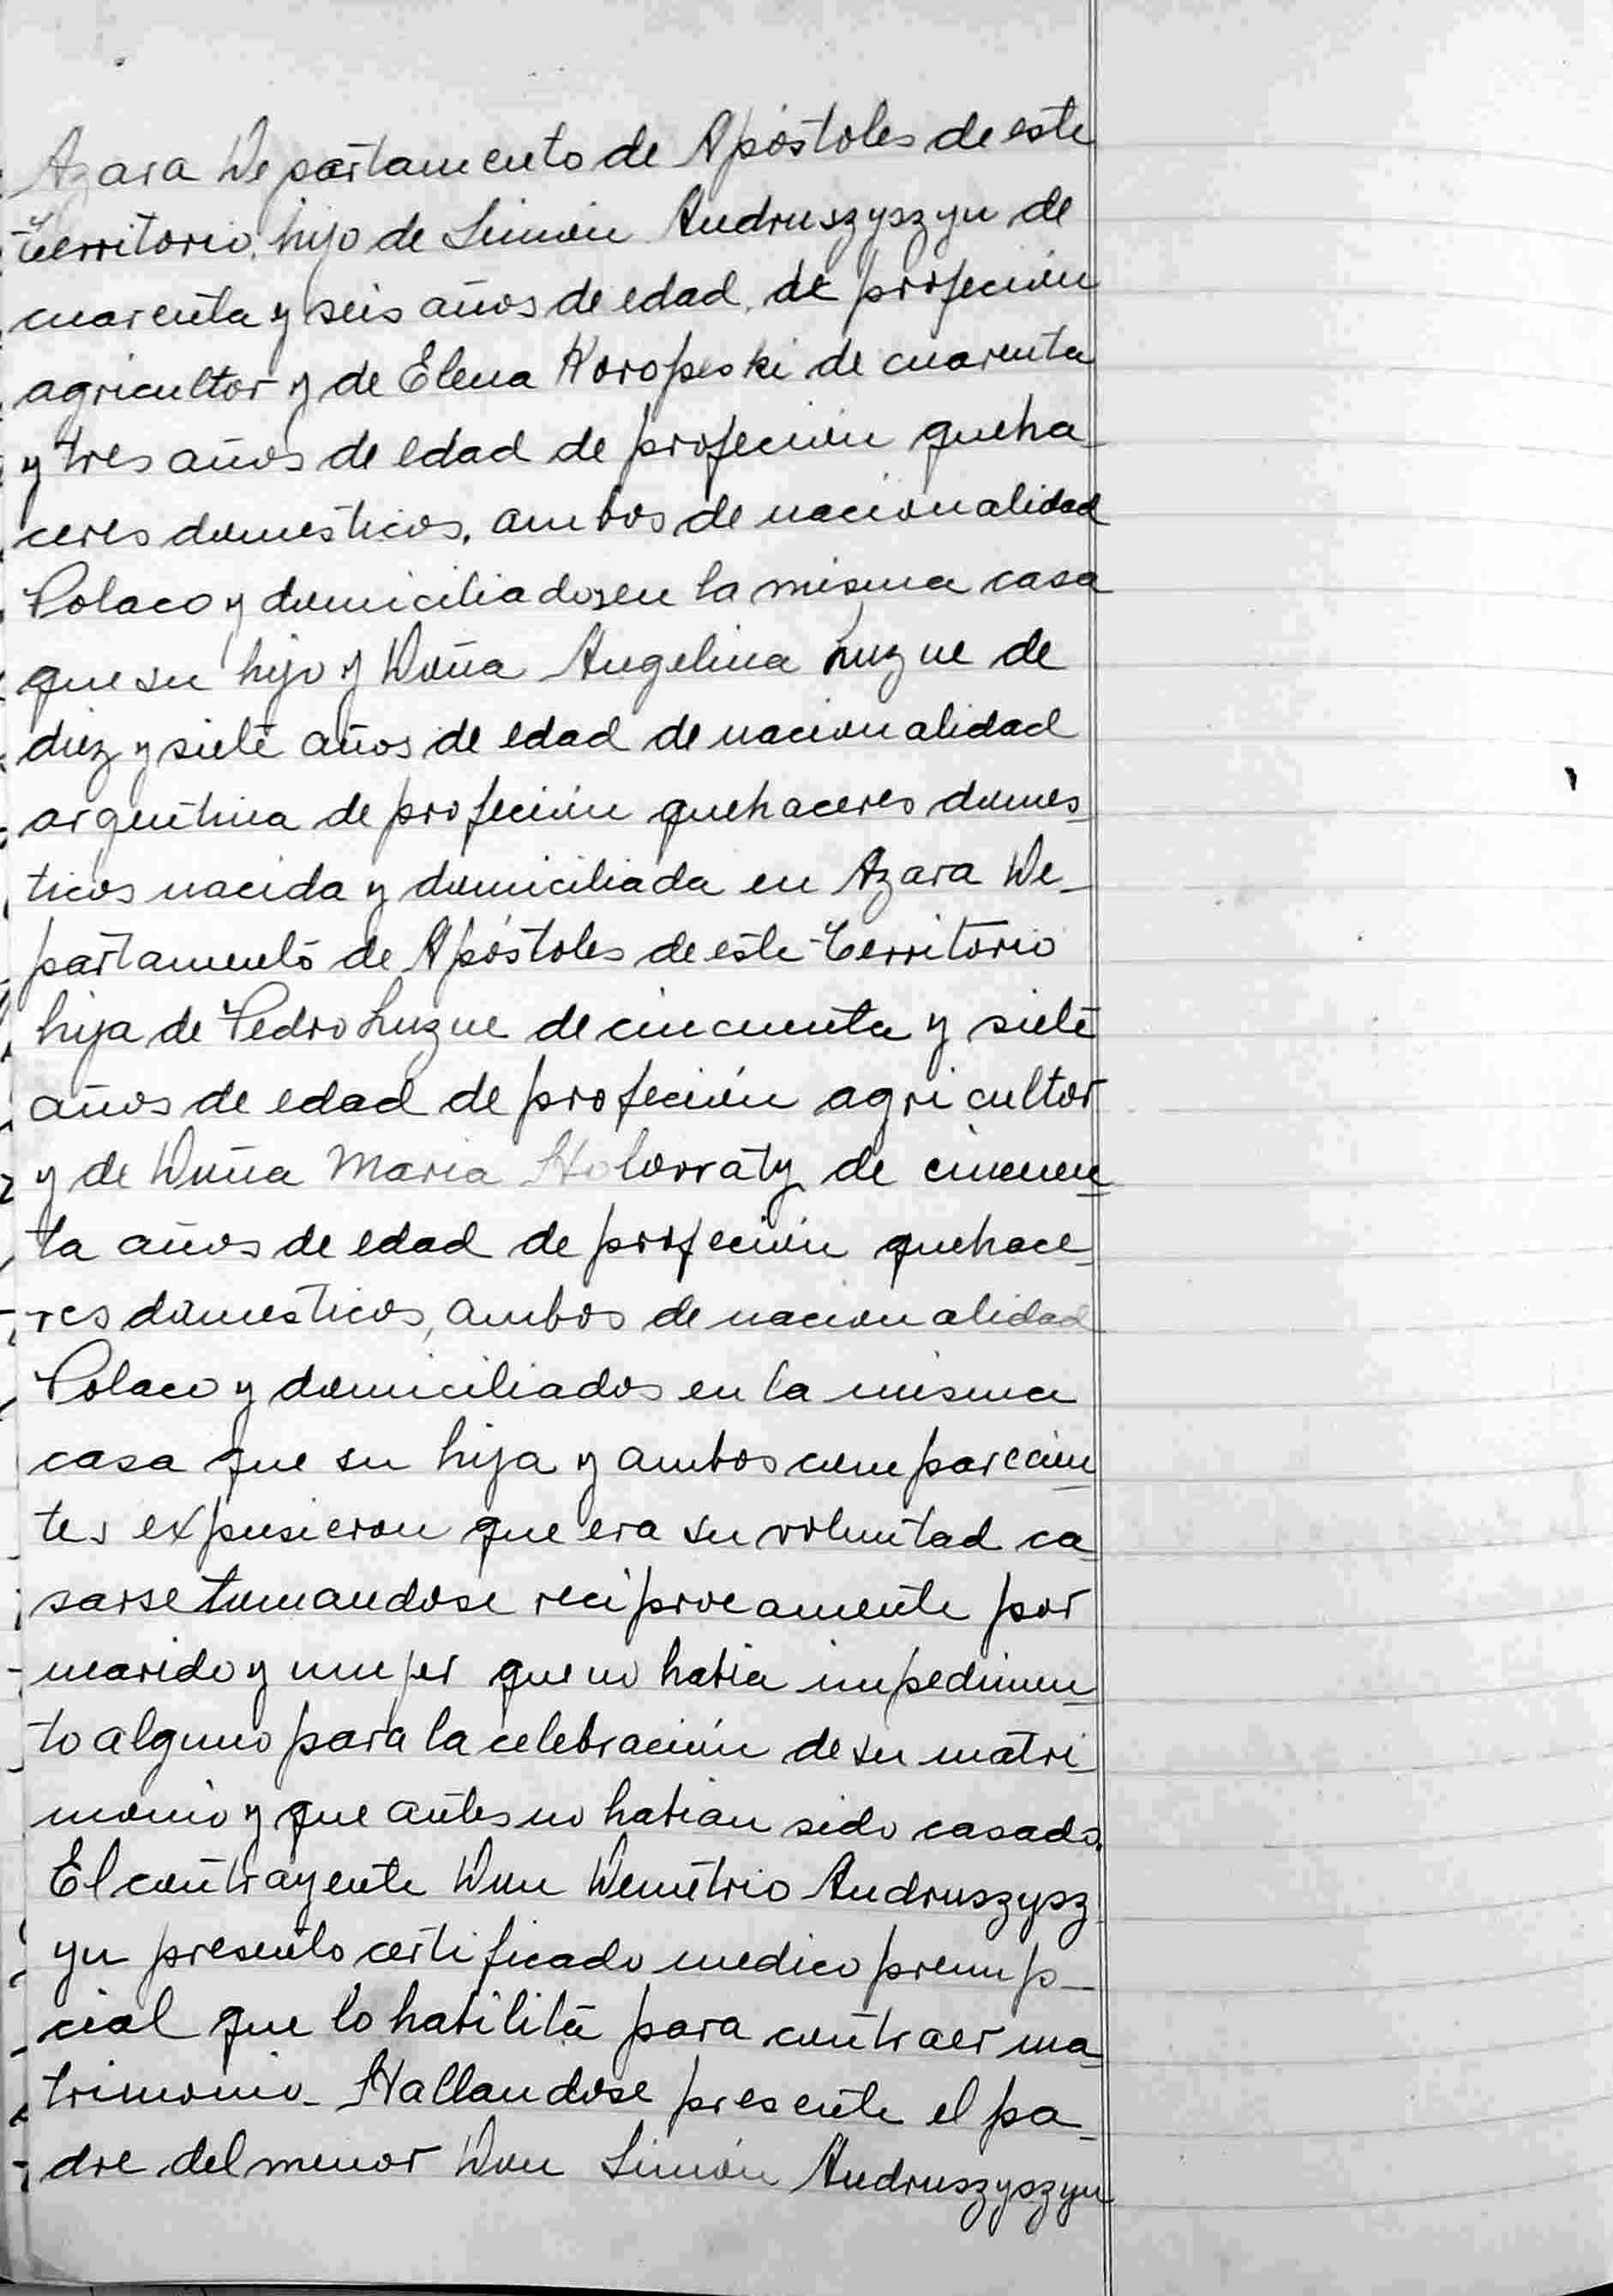 Azara Departamento de Apóstoles de este
Territorio, hijo de Simón Andruszyszyn de
cuarenta y seis años de edad, de profeción
agricultor y de Elena Koropeski de cuarenta
y tres años de edad de profeción queha
ceres domesticos, ambos de nacionalidad
Polaco y domiciliados en la misma casa
que su hijo y Doña Angelina Luzne de
diez y siete años de edad de nacionalidad
argentina de profeción quehaceres domes_
ticos nacida y domiciliada en Azara De_
partamento de Apóstoles de este Territorio
hija de Pedro Luzne de cincuenta y siete
años de edad de profeción agricultor
y de Doña Maria de cincuen_
ta años de edad de profeción quehace_
res domesticos, ambos de nacionalidad
Polaco y domiciliados en la misma
casa que su hija y ambos comparecien_
tes expusieron que era su voluntad ca_
sarse tomandose reciprocamente por
marido y mujer que no habia impedimen_
to alguno para la celebración de su matri_
monio y que antes no habian sido casados.
El contrayente Don Demetrio Andruszysz_
yn presento certificado medico prenup_
cial que lo habilita para contraer ma_
trimonio_ Hallandose presente el pa_
dre del menor Don Simón Andruszyszyn